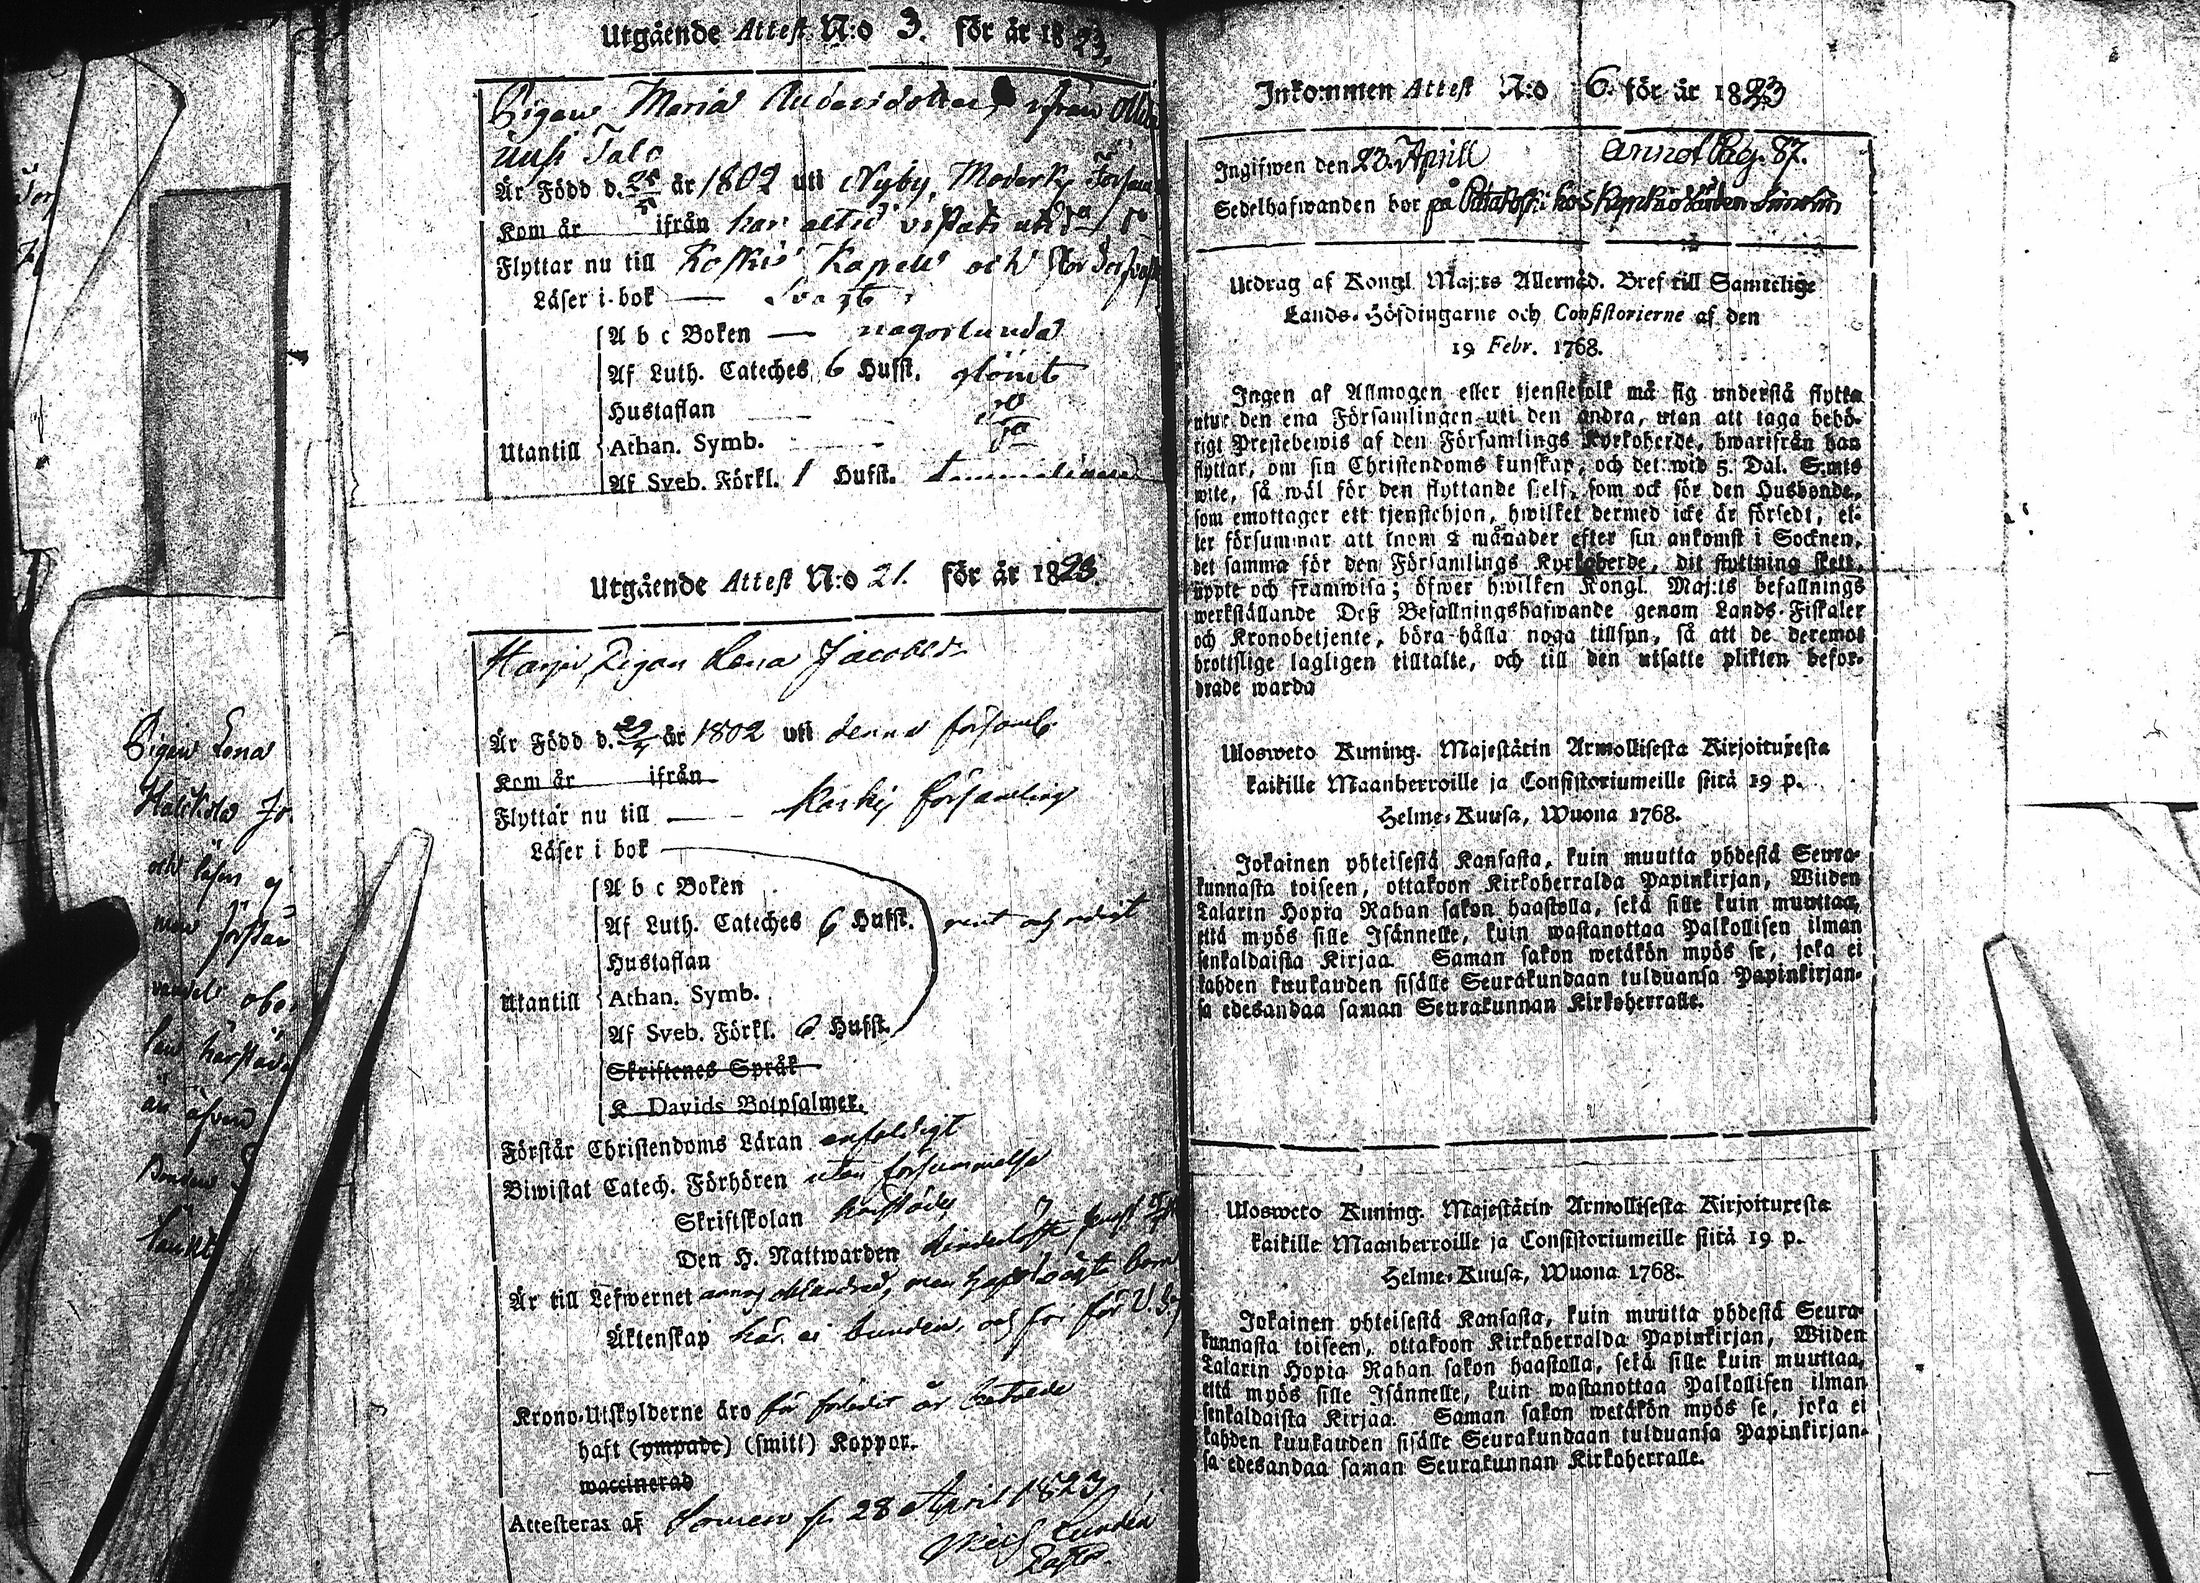 Utgående Attest N:o 3. för år 1823.
Pigan Maria Andersdotter, ifrån
Är Född d. 25/5 år 1802 uti Nyby, Moderk.
Kom år ifrån har altid vistats
Flyttar nu till Koskis Kapell och
Läser i bok — svagt
A b c Boken — någorlunda
Af Luth. Cateches 6 Hufst. glömt
Hustaflan
Athan. Symb.
Utantill
Af Sveb. Förkl. 1 Hufst.
Utgående Attest N:o 21. för år 1823
Pigan Lena Jacobsd:r
Är Född d. år 1802 uti denna församl.
Kom år ifrån
Flyttar nu till — Koskis församling
Läser i bok
A b c Boken
Af Luth. Cateches 6 Hufst. rent och redigt
Hustaflan
Utantill Athan. Symb.
Af Sveb. Förkl. 6 Hufst.
Skriftenes Språk
K Davids Botpsalmer.
Förstår Christendoms Läran enfaldigt
Biwistat Catech. Förhören utan försummelse
Skriftskolan härstädes
Den H. Nattwarden
Är till Lefwernet
Äktenskap här ej bunden, och fri för
Krono-Utskylderne äro för förledit år betalde
haft (ympade) (smitt) Koppor.
waccinerad
Attesteras af 28 April 1823
Lundén
Pastor.
Pigan Lena
och läser
än äfven
Inkommen Attest N:o 6. för år 1823
Ingifwen den 23. Aprill annot Pag. 87.
Sedelhafwanden bor på
Utdrag af Kongl. Maj:ts Allernåd. Bref till Samtelige
Lands-Höfdingarne och Consistorierne af den
19 Febr. 1768.
Ingen af Allmogen eller tjenstefolk må sig understå flytta
utur den ena Församlingen uti den andra, utan att taga behö-
rigt Prestebewis af den Församlings Kyrkoherde, hwarifrån han
flyttar, om sin Christendoms kunskap, och det wid 5. Dal. S:mts
wite, så wäl för den flyttande sjelf, som ock för den Husbonde,
som emottager ett tjenstehjon, hwilket dermed icke är försedt, el-
ler försummar att inom 2 månader efter sin ankomst i Socknen,
det samma för den Församlings Kyrkoherde, dit flyttning skett,
uppte och framwisa; öfwer hwilken Kongl. Maj:ts befallnings
werkställande Deß Befallningshafwande genom Lands-Fiskaler
och Kronobetjente, böra hålla noga tillsyn, så att de deremot
brottslige lagligen tilltalte, och till den utsatte plikten befor-
drade warda
Ulosweto Kuning. Majestätin Armollisesta Kirjoituxesta
kaikille Maanherroille ja Consistoriumeille siitä 19 p.
Helme-Kuusa, Wuona 1768.
Jokainen yhteisestä Kansasta, kuin muutta yhdestä Seura-
kunnasta toiseen, ottakoon Kirkoherralda Papinkirjan, Wiiden
Talarin Hopia Rahan sakon haastolla, sekä sille kuin muuttaa,
että myös sille Isännelle, kuin wastanottaa Palkollisen ilman
senkaldaista Kirjaa. Saman sakon wetäkön myös se, joka ei
kahden kuukauden sisälle Seurakundaan tulduansa Papinkirjan-
sa edesandaa saman Seurakunnan Kirkoherralle.
Ulosweto Kuning. Majestätin Armollisesta Kirjoituxesta
kaikille Maanherroille ja Consistoriumeille siitä 19 p.
Helme-Kuusa, Wuona 1768.
Jokainen yhteisestä Kansasta, kuin muutta yhdestä Seura-
kunnasta toiseen, ottakoon Kirkoherralda Papinkirjan, Wiiden
Talarin Hopia Rahan sakon haastolla, sekä sille kuin muuttaa,
että myös sille Isännelle, kuin wastanottaa Palkollisen ilman
senkaldaista Kirjaa. Saman sakon wetäkön myös se, joka ei
kahden kuukauden sisälle Seurakundaan tulduansa Papinkirjan-
sa edesandaa saman Seurakunnan Kirkoherralle.